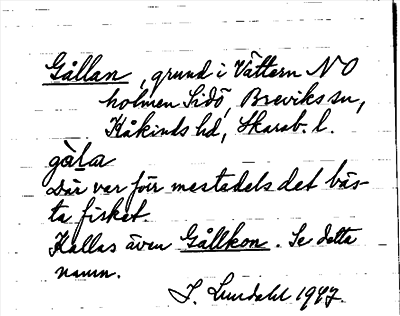 Gållan, grund i Vättern NO
holmen Sidö, Breviks sn,
Kåkinds hd, Skarab. l.
gå̀la
Där var förr mestadels det bäs-
ta fisket.
Kallas även Gållkon. Se detta
namn.
J. Lundahl 1947.